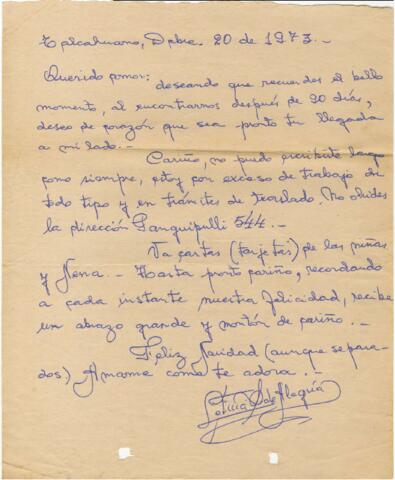 Talcahuano, Dbre. 20 de 1973.-
Querido amor: deseando que recuerdes el bello
momento, al encontrarnos después de 90 días,
deseo de corazón que sea pronto tu llegada
a mi lado.-
Cariño, no puedo escribirte largo
como siempre, estoy con exceso de trabajo de
todo tipo y en trámites de traslado. No olvides
la dirección Panguipulli 544.-
Va cartas (tarjetas) de las niñas
y Nena.- Hasta pronto cariño, recordando
a cada instante nuestra felicidad, recibe
un abrazo grande y montón de cariño.-
Feliz Navidad (aunque separa-
dos.) Amame como te adora.-
Leticia S de Alegría